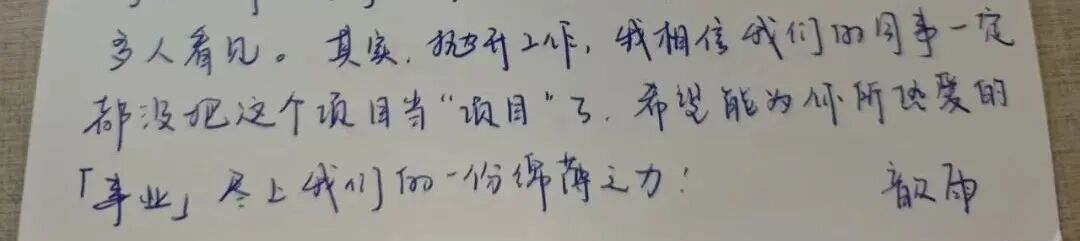 多人看见。其实,抛开工作,我相信我们的同事一定
都没把这个项目当“项目”了.希望能为你所热爱的
「事业」尽上我们的一份绵薄之力!
歆雨